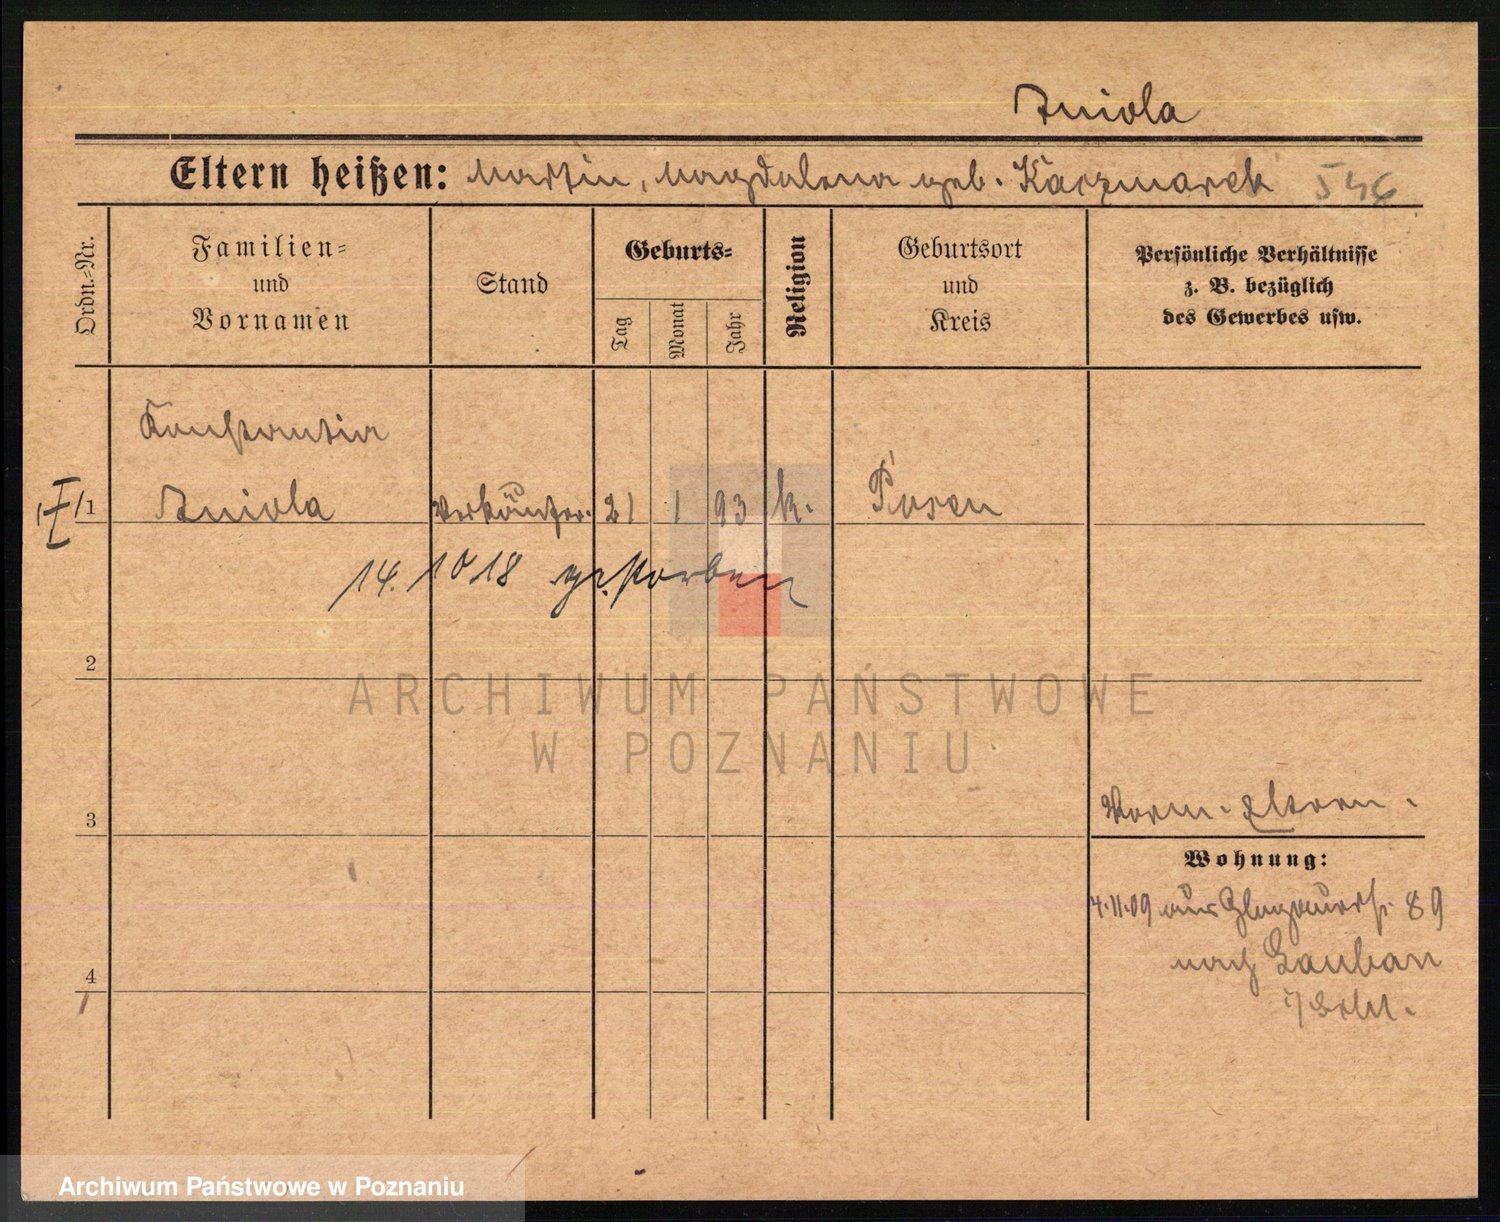 Aniola
Eltern heißen: Martin, Magdalena geb. Kaczmarek 546
Ordn.-Nr.
Familien-
und
Vornamen
Stand
Geburts-
Tag
Monat
Jahr
Religion
Geburtsort
und
Kreis
Persönliche Verhältnisse
z. B. bezüglich
des Gewerbes usw.
Konstantia
1 Aniola Verkäufer. 21 1 93 k. Posen
14. 10 18 gestorben
2
ARCHIWUM PAŃSTWOWE
W POZNANIU
3
Vorm. Eltern.
Wohnung:
4.11.09 aus Glogauerst. 89
nach Lauban
4
Archiwum Państwowe w Poznaniu